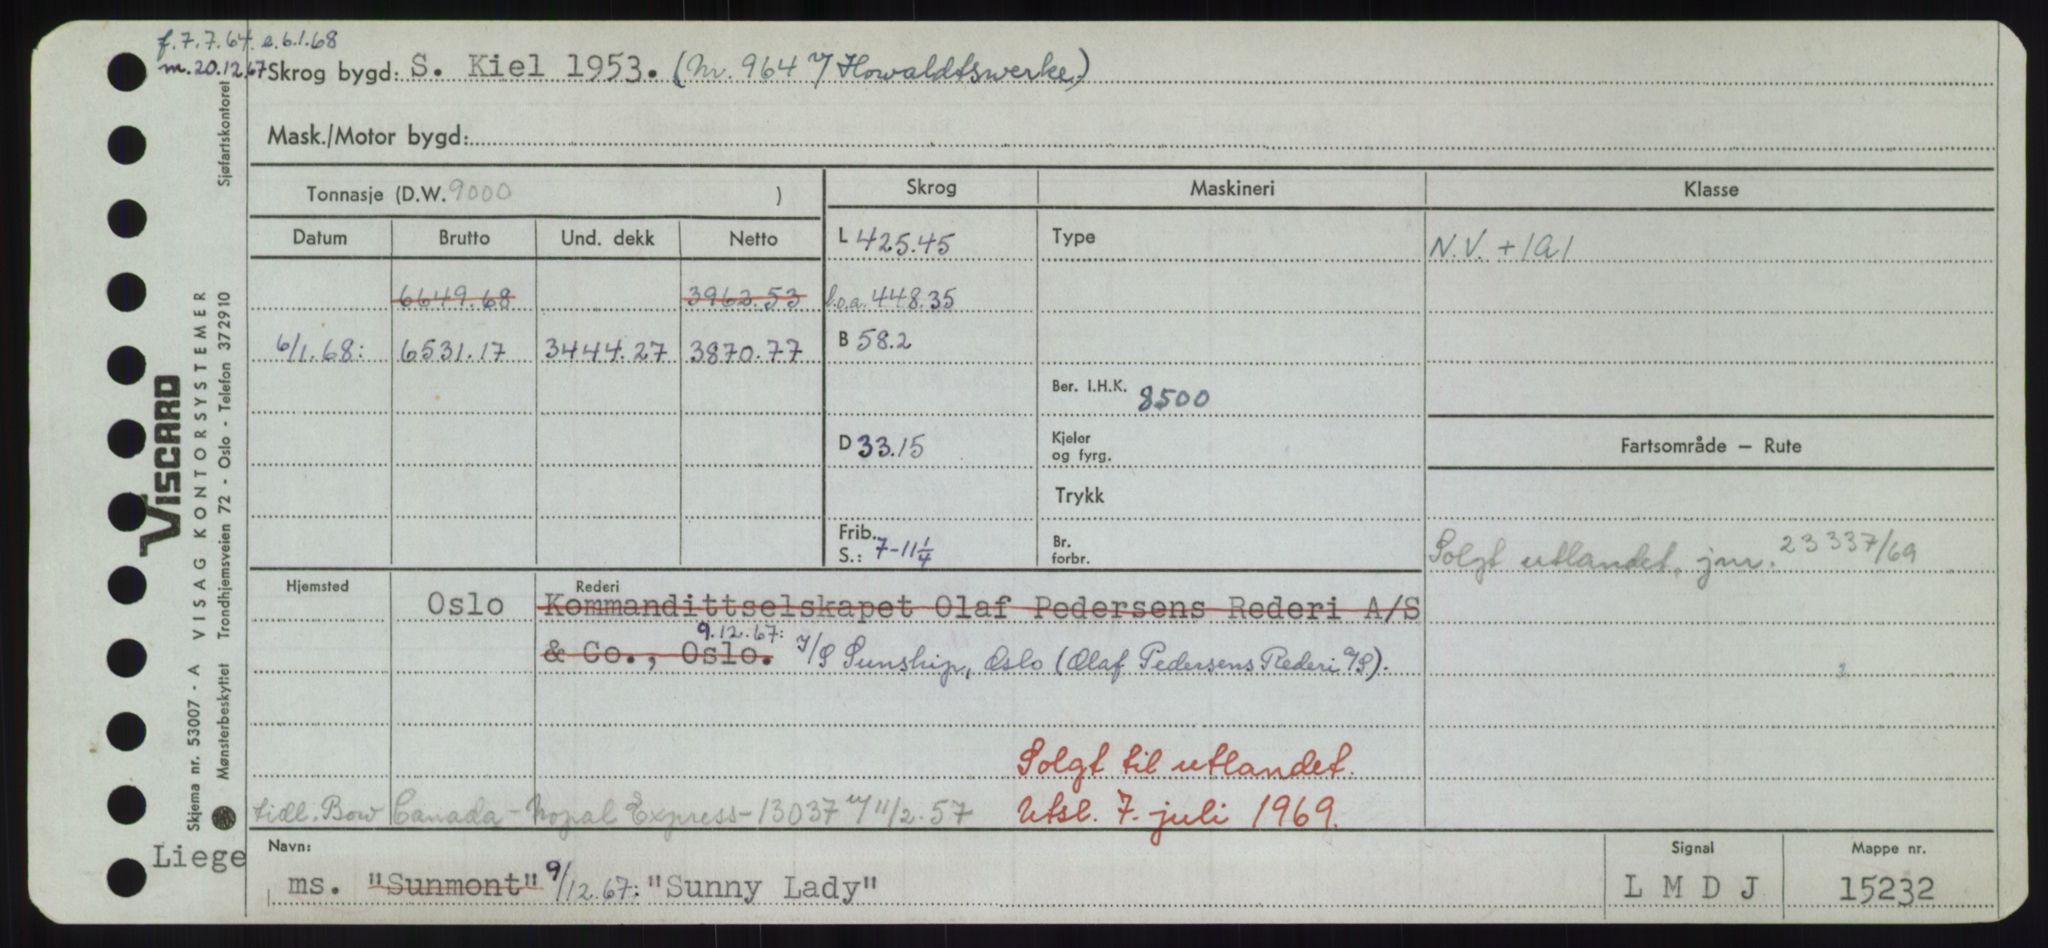 f. 7.7.64. e. 6.1.68
m. 20.12.67 Skrog bygd: S. Kiel 1953. (Nr. 964 v/ Howaldtswerke)
Mask./Motor bygd:
Tonnasje (D.W. 9000 )
Skrog
Maskineri
Klasse
Datum
Brutto
Und. dekk
Netto
L 425.45
Type
N.V. + 1A1
6649.68
3962.53
l.o.a. 448.35
6/1.68:
6531.17
3444.27
3870.77
B 58.2
Ber. I.H.K. 8500
D 33.15
Kjeler
og fyrg.
Fartsområde — Rute
Trykk
Frib.
S.: 7-11 1/4
Br.
forbr.
Solgt utlandet, jnr. 23337/69
Hjemsted
Oslo
Rederi
Kommandittselskapet Olaf Pedersens Rederi A/S
& Co., Oslo. 9.12.67: I/S Sunship, Oslo (Olaf Pedersens Rederi A/S).
Solgt til utlandet.
tidl. Bow Canada - Nopal Express - 13037 11/2.57
Utsl. 7. juli 1969.
Liege
Navn:
ms. "Sunmont" 9/12.67: "Sunny Lady"
Signal
L M D J
Mappe nr.
15232
Skjema nr. 53007 - A VISAG KONTORSYSTEMER
Mønsterbeskyttet Trondhjemsveien 72 - Oslo - Telefon 372910
Sjøfartskontoret
VISCARD